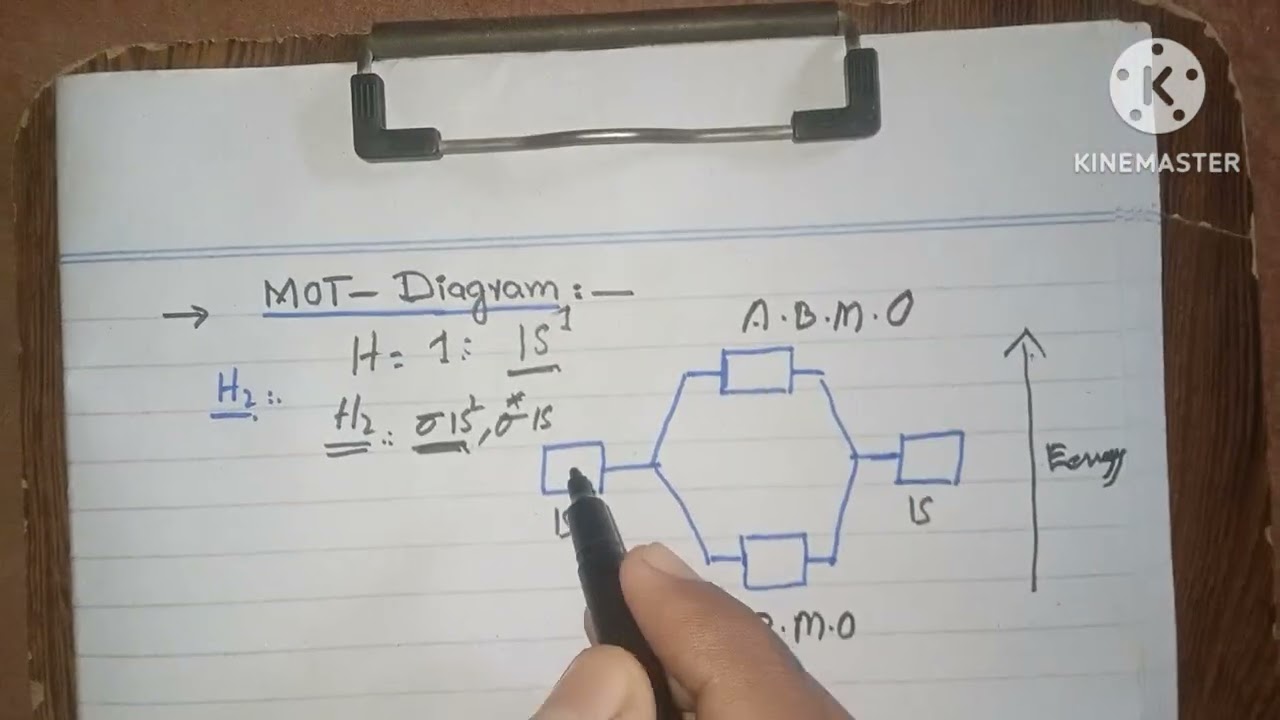 KINEMASTER
→ MOT- Diagram:-
H= 1: 1S¹
H₂:. H₂: σ1S², σ*1S
A.B.M.O
1S
1S
Eenrgy
B.M.O